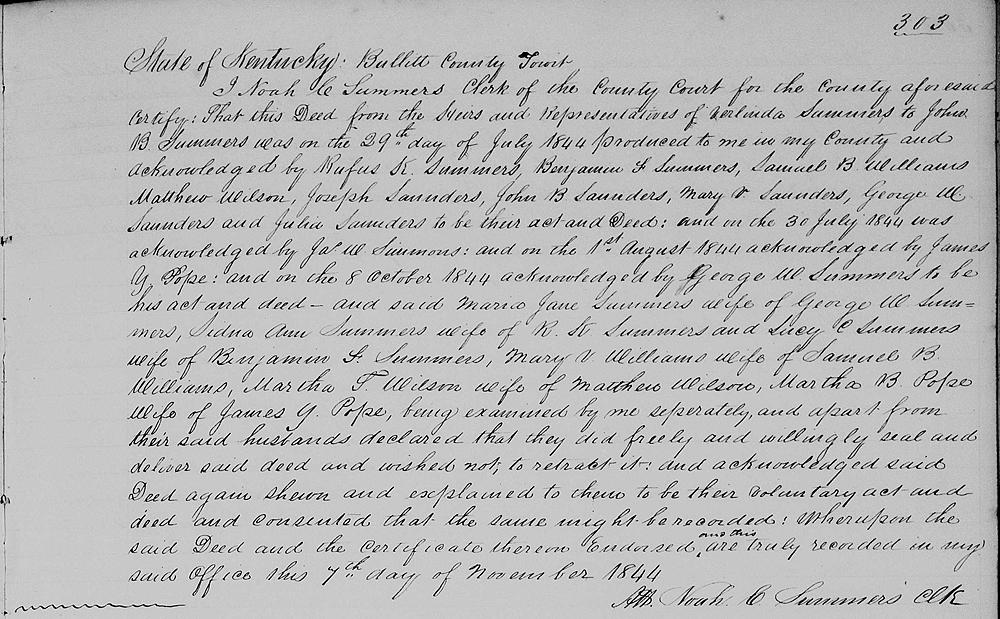 303
State of Kentucky: Bullitt County Towit
I Noah C Summers Clerk of the County Court for the County aforesaid
certify: That this Deed from the Heirs and Representatives of Verlinda Summers to John
B. Summers was on the 29th day of July 1844 produced to me in my County and
acknowledged by Rufus K. Summers, Benjamin F Summers, Samuel B. Williams
Matthew Wilson, Joseph Saunders, John B Saunders, Mary V. Saunders, George W.
Saunders and Julia Saunders to be their act and Deed: and on the 30 July 1844 was
acknowledged by Jas W Simmons: and on the 1st August 1844 acknowledged by James
Y. Pope: and on the 8 October 1844 acknowledged by George W. Summers to be
his act and deed – and said Maria Jane Summers wife of George W Sum=
mers, Edna Ann Summers wife of R. K Summers and Lucy C Summers
wife of Benjamin F. Summers, Mary V Williams wife of Samuel B.
Williams, Martha T. Wilson wife of Matthew Wilson, Martha B. Pope
Wife of James Y. Pope, being examined by me seperately, and apart from
their said husbands declared that they did freely and willingly seal and
deliver said deed and wished not, to retract it: and acknowledged said
Deed again shewn and explained to them to be their voluntary act and
deed and consented that the same might be recorded: Wherupon the
said Deed and the certificate thereon Endorsed, and this are truly recorded in my
said Office this 7th day of November 1844
Att. Noah. C. Summers Clk